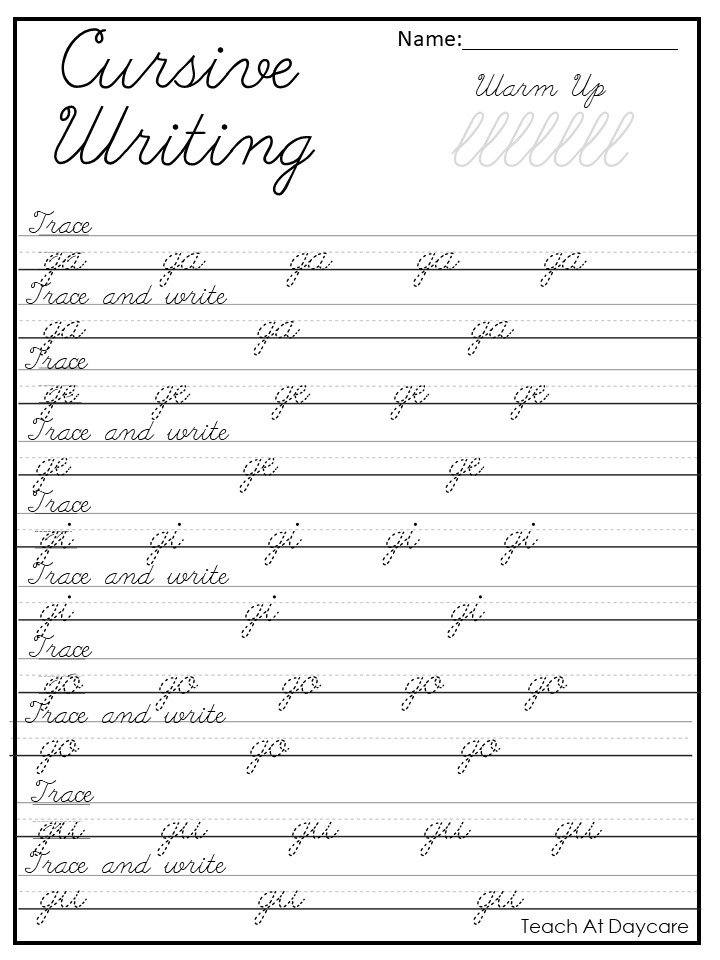 Cursive Writing
Name:
Warm Up
lllllll
Trace
ga ga ga ga ga
Trace and write
ga ga ga
Trace
ge ge ge ge ge
Trace and write
ge ge ge
Trace
gi gi gi gi gi
Trace and write
gi gi gi
Trace
go go go go go
Trace and write
go go go
Trace
gu gu gu gu gu
Trace and write
gu gu gu
Teach At Daycare